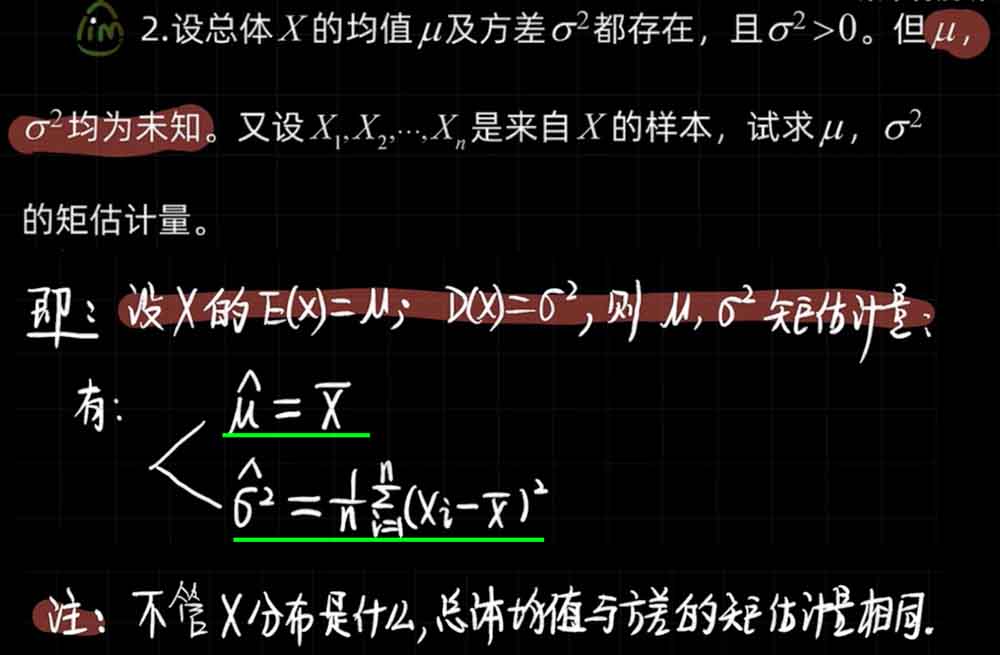 lim 2.设总体X的均值μ及方差σ²都存在，且σ²>0。但μ，
σ²均为未知。又设X₁,X₂,…,Xₙ是来自X的样本，试求μ，σ²
的矩估计量。
即：设X的E(X)=μ；D(X)=σ²,则 μ,σ²矩估计量：
有：
μ̂ = X̄
σ̂² = 1/n ∑ᵢ₌₁ⁿ (Xᵢ-X̄)²
注：不管X分布是什么,总体均值与方差的矩估计量相同.